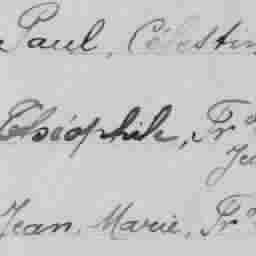 Paul, Célestin
Théophile, Fr
Je
Jean, Marie, Fr